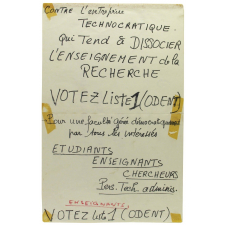 CONTRE l'entreprise
TECHNOCRATIQUE
qui Tend à DISSOCIER
L'ENSEIGNEMENT de la
RECHERCHE
VOTEZ Liste 1 (ODENT)
Pour une faculté gérée démocratiquement
par tous les intéressés
ETUDIANTS
ENSEIGNANTS
CHERCHEURS
Pers. Tech. adminis.
ENSEIGNANTS
VOTEZ liste 1 (ODENT)